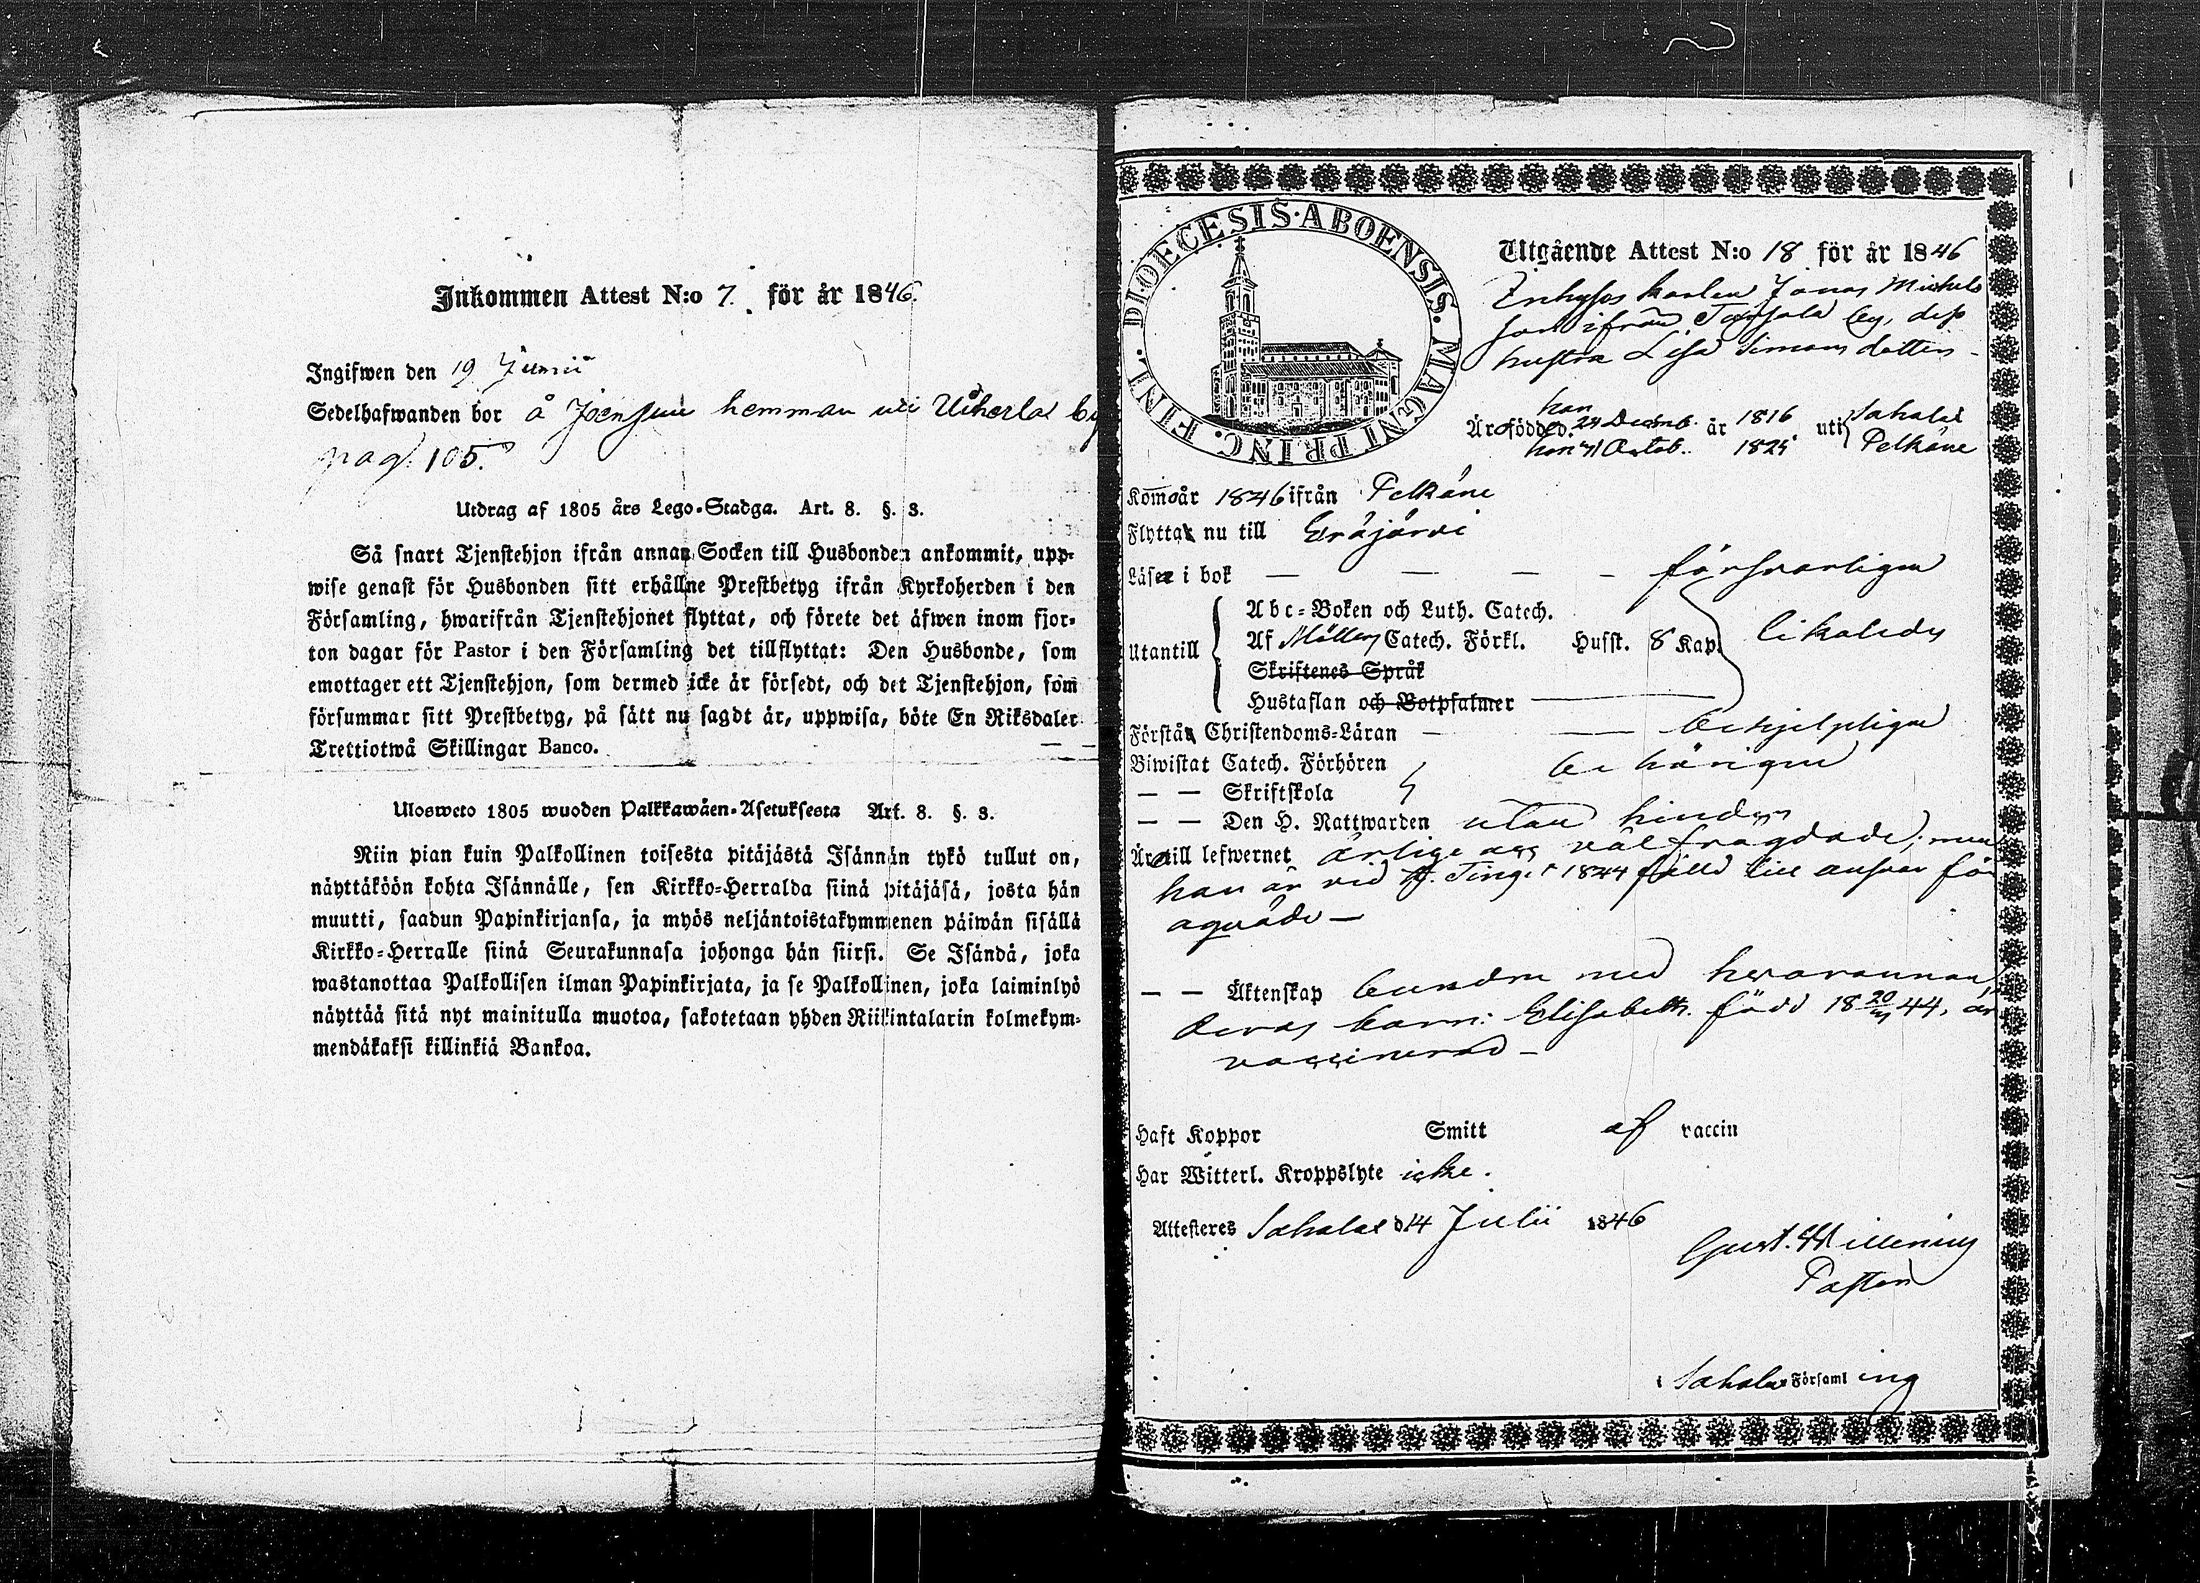 Inkommen Attest N:o 7. för år 1846.
Ingifwen den 19 Junii
Sedelhafwanden bor å Joensuu hemman uti Uiherla by
pag. 105.
Utdrag af 1805 års Lego-Stadga. Art. 8. §. 3.
Så snart Tjenstehjon ifrån annan Socken till Husbonden ankommit, upp-
wise genast för Husbonden sitt erhållne Prestbetyg ifrån Kyrkoherden i den
Församling, hwarifrån Tjenstehjonet flyttat, och förete det äfwen inom fjor-
ton dagar för Pastor i den Församling det tillflyttat: Den Husbonde, som
emottager ett Tjenstehjon, som dermed icke är försedt, och det Tjenstehjon, som
försummar sitt Prestbetyg, på sätt nu sagdt är, uppwisa, böte En Riksdaler
Trettiotwå Skillingar Banco. — —
Ulosweto 1805 wuoden Palkkawäen-Asetuksesta Art. 8. §. 3.
Niin pian kuin Palkollinen toisesta pitäjästä Isännän tykö tullut on,
näyttäköön kohta Isännälle, sen Kirkko-Herralda siinä pitäjäsä, josta hän
muutti, saadun Papinkirjansa, ja myös neljäntoistakymmenen päiwän sisällä
Kirkko-Herralle siinä Seurakunnasa johonga hän siirsi. Se Isändä, joka
wastanottaa Palkollisen ilman Papinkirjata, ja se Palkollinen, joka laiminlyö
näyttää sitä nyt mainitulla muotoa, sakotetaan yhden Riikintalarin kolmekym-
mendäkaksi killinkiä Bankoa.
DIOECESIS·ABOENSIS. MAGNI PRINC. FINL.
Utgående Attest N:o 18 för år 1846
Inhyses karlen Jonas Michels
son ifrån by, dess
hustra Lisa Simons dotter
han
Äro födde d. 24 Decemb. år 1816 uti Sahalax
hon Octob. 1825 Pelkäne
Kommo år 1846 ifrån Pelkäne
Flytta nu till Eräjärvi
Läse i bok — — — försvarligen
Abc-Boken och Luth. Catech.
Utantill Af Möllers Catech. Förkl. Husst. 8 Kap. likaledes
Skriftenes Språk
Hustaflan och Botpsalmer
Förstå Christendoms-Läran — — behjelpligen
Biwistat Catech. Förhören behörigen
— — Skriftskola
— — Den H. Nattwarden utan hinder
Äro till lefwernet ärlige och välfrägdade; men
han är vid Tinget 1844 fälld till ansvar för
åqväde —
— — Äktenskap bundne med hvarannan,
deras barn: Elisabeth. född 18 20 44, är
vaccinerad —
Haft Koppor Smitt af vaccin
Har Witterl. Kroppslyte icke.
Attesteres Sahalax d 14 Julii 1846
Gust.
Pastor
i Sahalax Församling